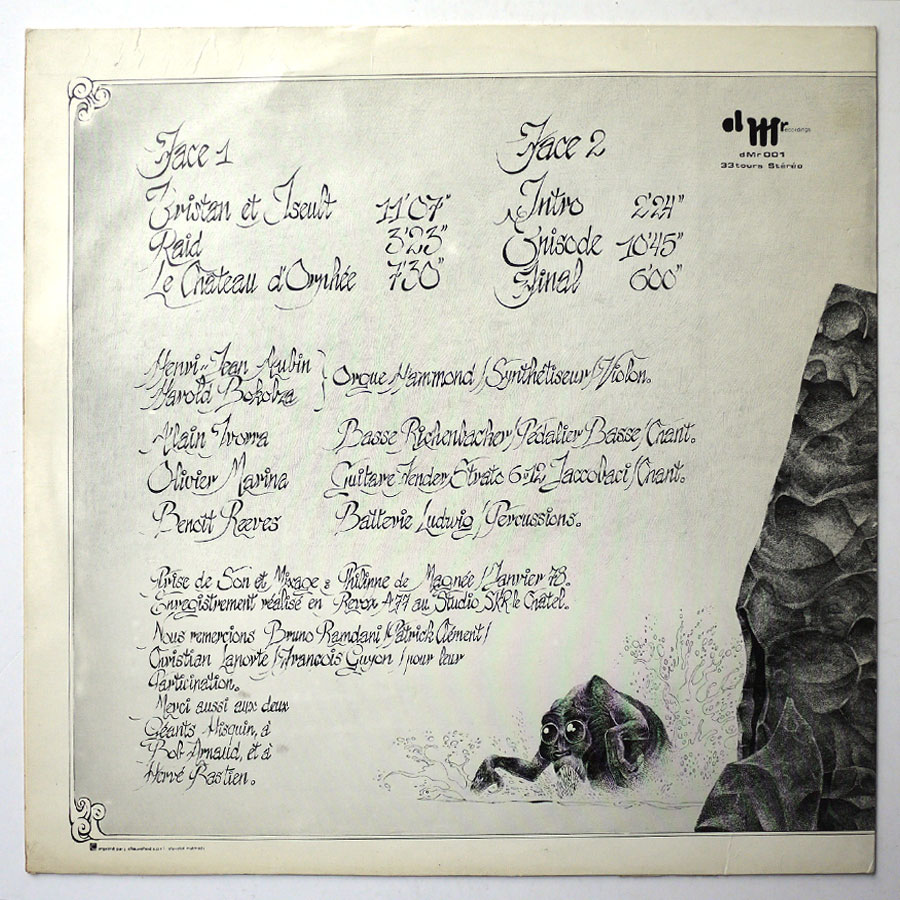 dMr recordings
dMr 001
33 tours Stéréo
Face 1
Tristan et Iseult 11'07"
Raid 3'23"
Le Château d'Orphée 7'30"
Face 2
Intro 2'24"
Episode 10'45"
Final 6'00"
Henri-Jean Aubin
Harold Bokobza
Orgue Hammond/Synthétiseur/Violon.
Alain Ivorra Basse Richenbacher/Pédalier Basse/Chant.
Olivier Marina Guitare Fender Strato 6+12 Jaccobaci/Chant.
Benoit Reeves Batterie Ludwig/Percussions.
Prise de Son et Mixage: Philippe de Magnée/Janvier 78.
Enregistrement réalisé en Revox A77 au Studio SKR le Châtel.
Nous remercions Bruno Ramdani/Patrick Clément/
Christian Laporte/François Guyon/pour leur
Participation.
Merci aussi aux deux
Géants Hisquin, à
Bob Arnaud, et à
Hervé Bastien.